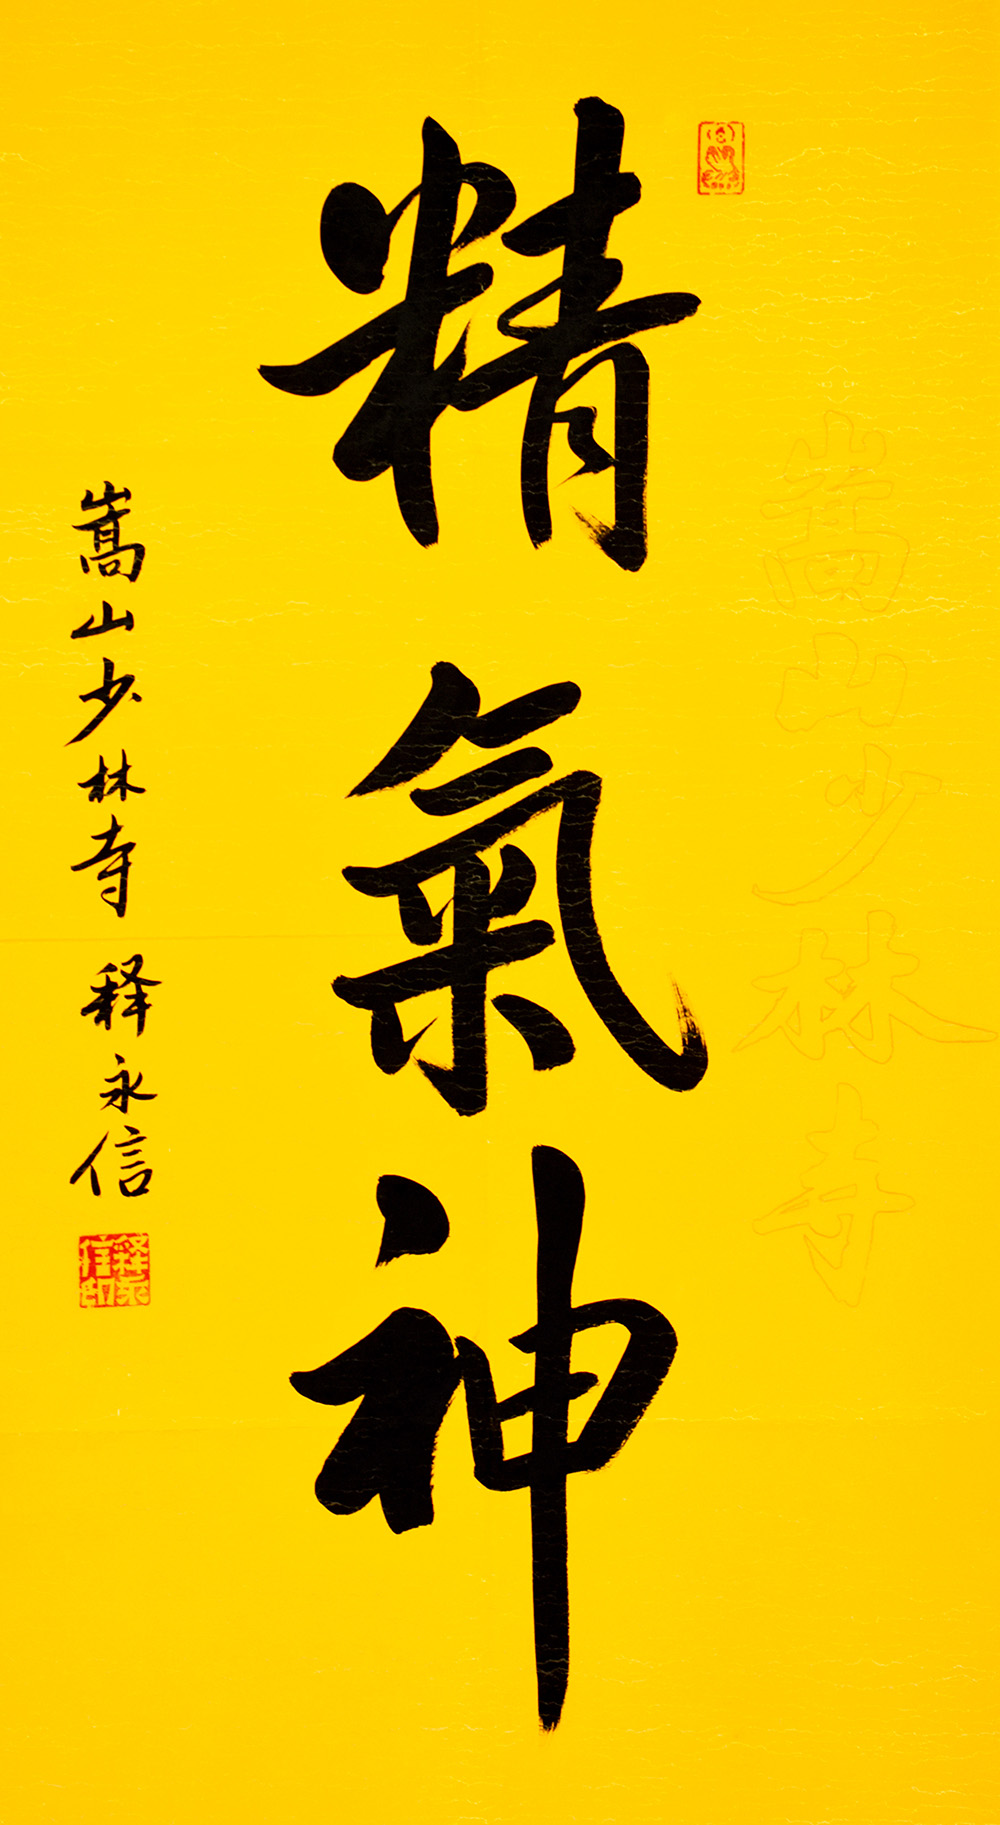 嵩山少林寺
精氣神
嵩山少林寺 释永信
释永信印